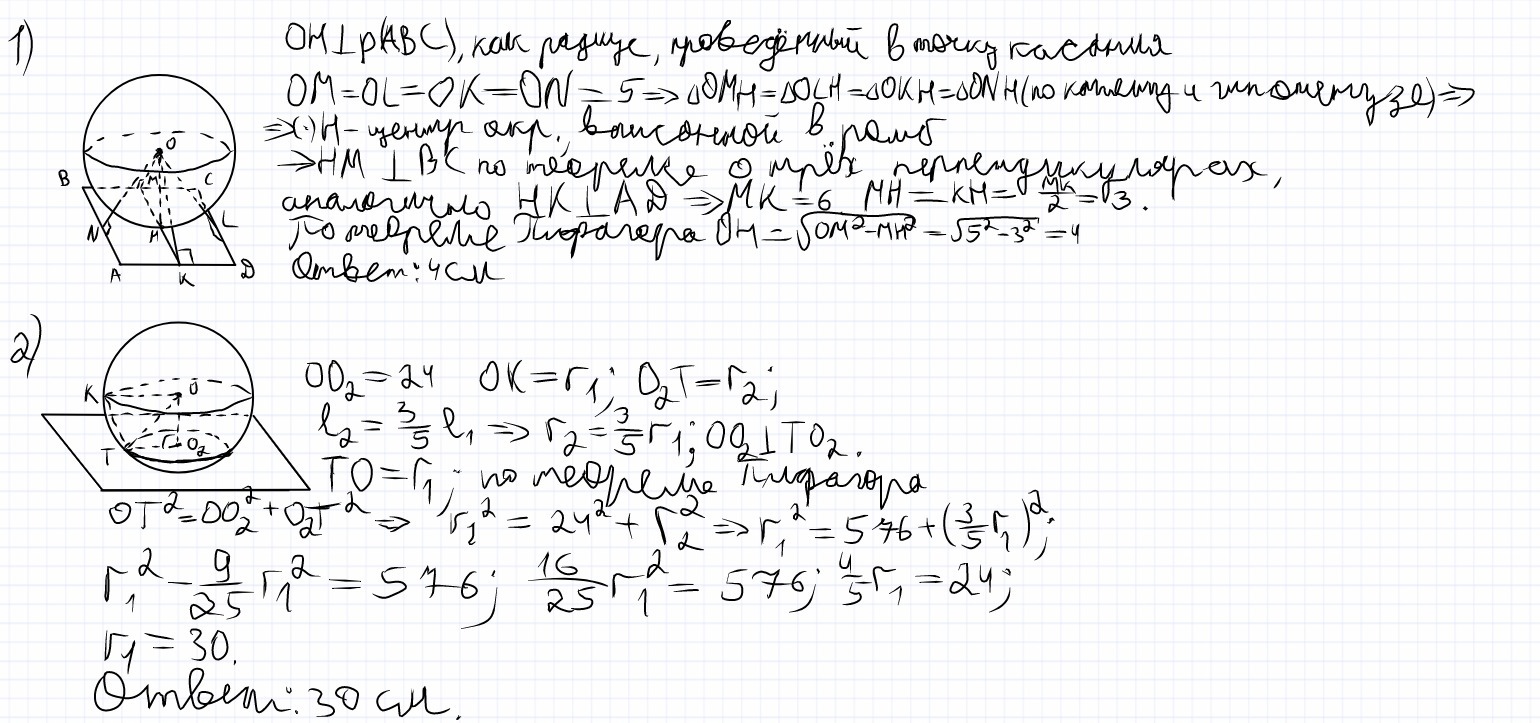 1)
OH⊥p(ABC), как радиус, проведённый в точку касания
OM=OL=OK=ON=5⇒ΔOMH=ΔOLH=ΔOKH=ΔONH(по катету и гипотенузе)⇒
⇒(·)H-центр окр, вписанной в ромб
→HM⊥BC по теореме о трёх перпендикулярах,
аналогично HK⊥AD⇒MK=6 MH=KH=MK/2=3.
По теореме Пифагора OH=√OM²-MH²=√5²-3²=4
Ответ: 4см
O
B
M
C
N
H
L
A
K
D
2)
K
O
T
r
O₂
OO₂=24 OK=r₁; O₂T=r₂;
l₂=3/5 l₁⇒r₂=3/5 r₁; OO₂⊥TO₂.
TO=r₁; по теореме Пифагора
OT²=OO₂²+O₂T²⇒ r₁²=24²+r₂²⇒r₁²=576+(3/5 r₁)²;
r₁²-9/25 r₁²=576; 16/25 r₁²=576; 4/5 r₁=24;
r₁=30.
Ответ: 30 см.